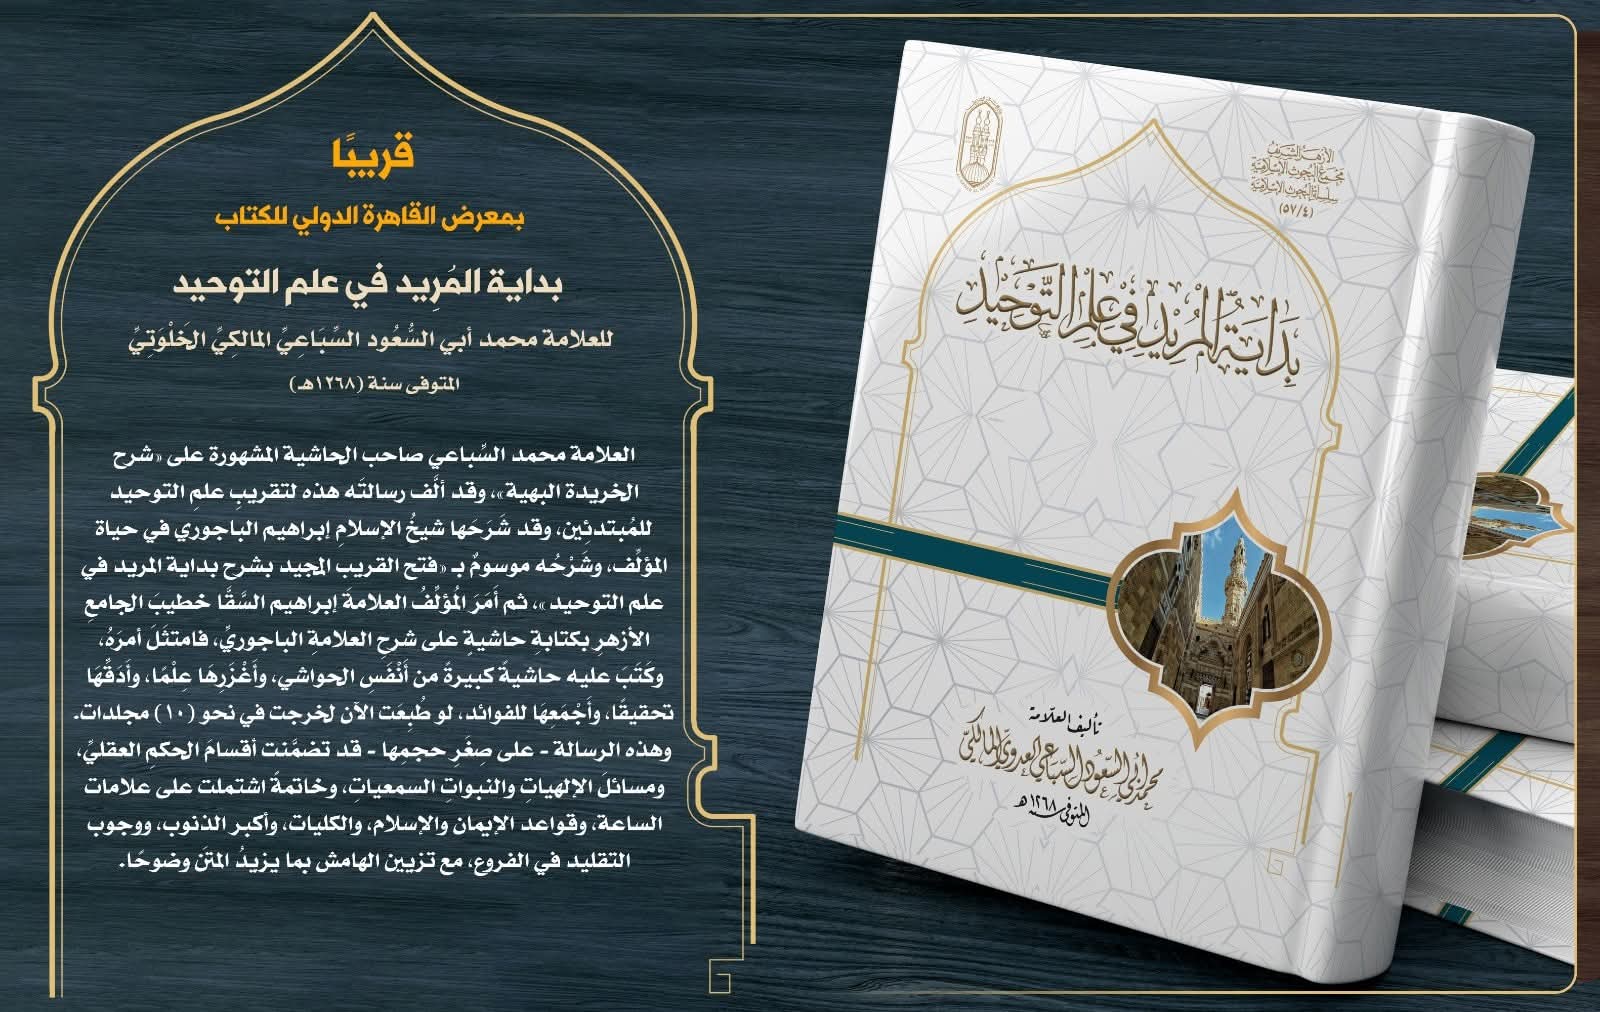 قريبًا
بمعرض القاهرة الدولي للكتاب
بداية المُرِيد في علم التوحيد
للعلامة محمد أبي السُّعُود السِّبَاعِيِّ المالكِيِّ الخَلْوَتِيِّ
المتوفى سنة (١٢٦٨هـ)
العلامة محمد السِّباعي صاحب الحاشية المشهورة على «شرح
الخريدة البهية»، وقد ألَّف رسالتَه هذه لتقريبِ علمِ التوحيد
للمُبتدئِين، وقد شَرَحَها شيخُ الإسلامِ إبراهيم الباجوري في حياة
المؤلِّف، وشَرْحُه موسومٌ بـ «فتح القريب المجيد بشرح بداية المريد في
علم التوحيد»، ثم أَمَرَ المُؤلِّفُ العلامةَ إبراهيم السَّقَّا خطيبَ الجامعِ
الأزهرِ بكتابةِ حاشيةٍ على شرحِ العلامةِ الباجوريِّ، فامتثَلَ أمرَهُ،
وكَتَبَ عليه حاشيةً كبيرةً من أَنْفَسِ الحواشي، وأَغْزَرِهَا عِلْمًا، وأَدَقِّهَا
تحقيقًا، وأَجْمَعِهَا للفوائد، لو طُبِعَت الآن لخرجت في نحو (١٠) مجلدات.
وهذه الرسالة - على صِغَرِ حجمِها - قد تضمَّنت أقسامَ الحكمِ العقليِّ،
ومسائلَ الإلهياتِ والنبواتِ السمعياتِ، وخاتمةً اشتملت على علامات
الساعة، وقواعد الإيمان والإسلام، والكليات، وأكبر الذنوب، ووجوب
التقليد في الفروع، مع تزيين الهامش بما يزيدُ المتنَ وضوحًا.
الأزهر الشريف
مجمع البحوث الإسلامية
سلسلة البحوث الإسلامية
(٥٧/٤)
بداية المريد في علم التوحيد
تأليف العلّامة
محمد أبي السعود السباعي العدوي المالكي
المتوفى سنة ١٢٦٨هـ